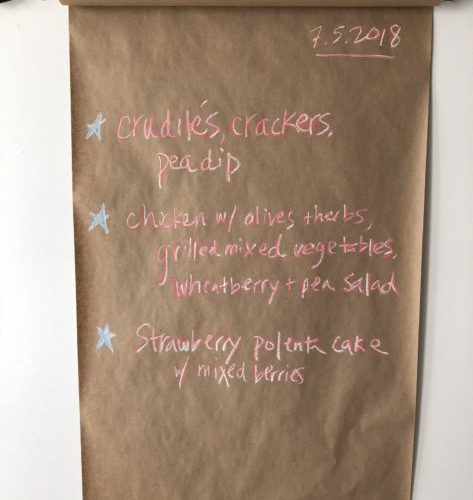 7.5.2018
crudités, crackers,
pea dip
chicken w/ olives + herbs,
grilled mixed vegetables,
wheatberry + pea salad
Strawberry polenta cake
w/ mixed berries